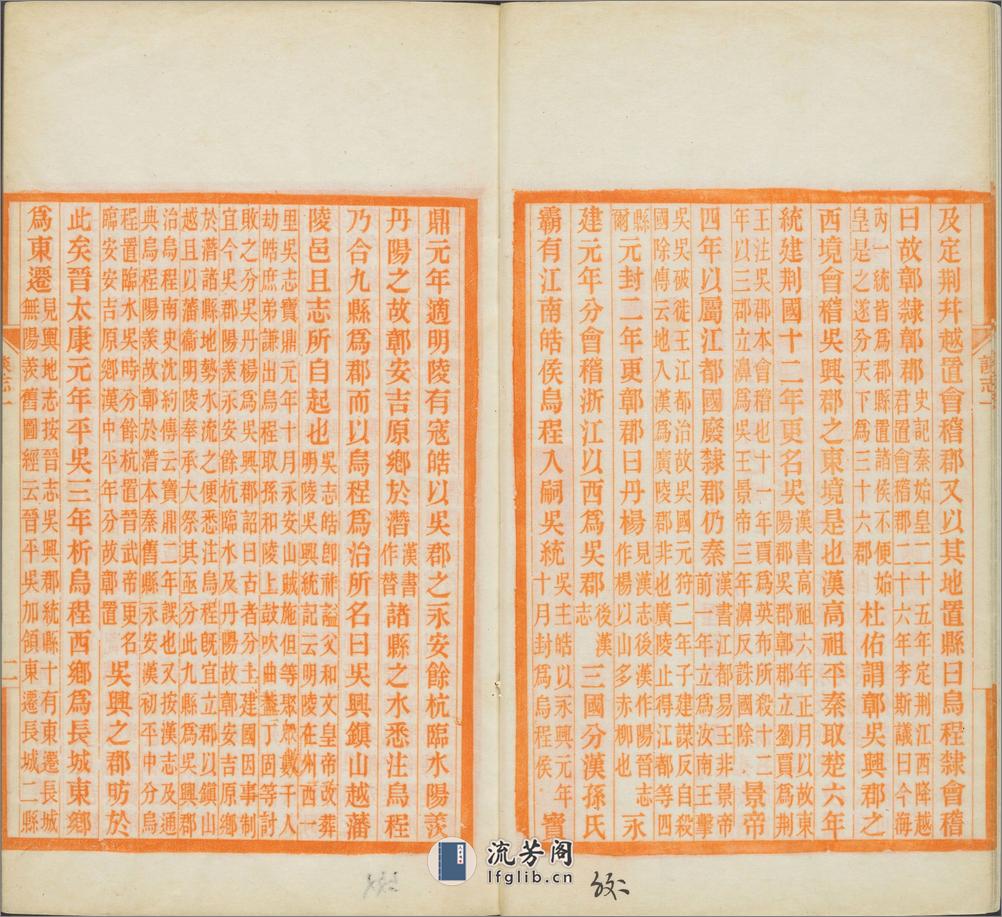 及定荆幷越置會稽郡又以其地置縣曰烏程隸會稽
曰故鄣隸鄣郡史記秦始皇二十五年定荆江西降越君置會稽郡二十六年李斯議曰今海
內一統皆爲郡縣置諸侯不便始皇是之遂分天下爲三十六郡杜佑謂鄣吳興郡之
西境會稽吳興郡之東境是也漢高祖平秦取楚六年
統建荆國十二年更名吳漢書高祖六年正月以故東陽郡鄣郡吳郡立劉賈爲荆
王注吳郡本會稽也十一年賈爲英布所殺十二年以三郡立濞爲吳王景帝三年濞反誅國除景帝
四年以屬江都國廢隸郡仍秦漢書江都易王非景帝前一年立爲汝南王擊
吳吳破徙王江都治故吳國元狩二年子建謀反自殺國除傳云地入漢爲廣陵郡非也廣陵止得江都等四
縣爾元封二年更鄣郡曰丹楊見漢志後漢作陽晉志作楊以山多赤柳也永
建元年分會稽浙江以西爲吳郡後漢志三國分漢孫氏
霸有江南皓侯烏程入嗣吳統吳主皓以永興元年十月封爲烏程侯寶
鼎元年適明陵有寇皓以吳郡之永安餘杭臨水陽羨
丹陽之故鄣安吉原鄉於潛漢書作朁諸縣之水悉注烏程
乃合九縣爲郡而以烏程爲治所名曰吳興鎮山越藩
陵邑且志所自起也吳志皓卽祚謚父和文皇帝改葬明陵吳興統記云明陵在州西一
里吳志寶鼎元年十月永安山賊施但等聚衆數千人劫皓庶弟謙出烏程取孫和陵上鼓吹曲蓋丁固等討
敗之分吳丹楊爲吳興郡詔曰古者分土建國因事制宜今吳郡陽羨永安餘杭臨水及丹陽故鄣安吉原鄉
於潛諸縣地勢水流之便悉注烏程旣宜立郡以鎮山越且以藩衞明陵奉承大祭其亟分此九縣爲吳興郡
治烏程南史沈約傳云寶鼎二年誤也又按漢志及通典烏程陽羨故鄣於潛本秦舊縣永安漢初平中分烏
程置臨水吳時分餘杭置晉武帝更名臨安安吉原鄉漢中平年分故鄣置吳興之郡昉於
此矣晉太康元年平吳三年析烏程西鄉爲長城東鄉
爲東遷見輿地志按晉志吳興郡統縣十有東遷長城無陽羨舊圖經云晉平吳加領東遷長城二縣
二
流芳阁
lfglib.cn